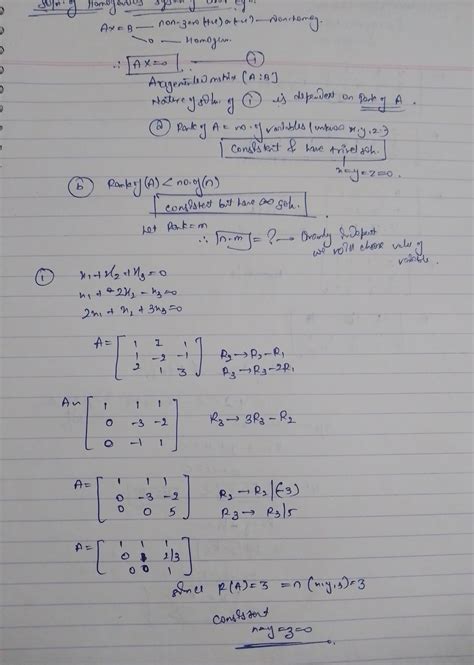 Soln. of Homogeneous System of
AX=B — non-zero
0 — Homogen.
∴ AX=0 — ①
Augmented matrix [A:B]
Nature of soln. of ① is dependent on Rank of A.
ⓐ Rank of A = no. of variables (x,y,z)
Consistent & have trivial soln.
x=y=z=0.
ⓑ Rank of (A) < no. of (n)
Consistent but have ∞ soln.
Let Rank=m
∴ n-m = ? → we will choose value of
variable.
① x₁+x₂+x₃=0
x₁+2x₂-x₃=0
2x₁+x₂+3x₃=0
A= [ 1 2 1
1 -2 -1 R₂→R₂-R₁
2 1 3 ] R₃→R₃-2R₁
A~ [ 1 1 1
0 -3 -2 R₃→3R₃-R₂
0 -1 1 ]
A= [ 1 1 1
0 -3 -2 R₂→R₂|(-3)
0 0 5 ] R₃→R₃|5
A= [ 1 1 1
0 1 2/3
0 0 1 ]
since R(A)=3 = n(x,y,z)=3
Consistent
x=y=z=0